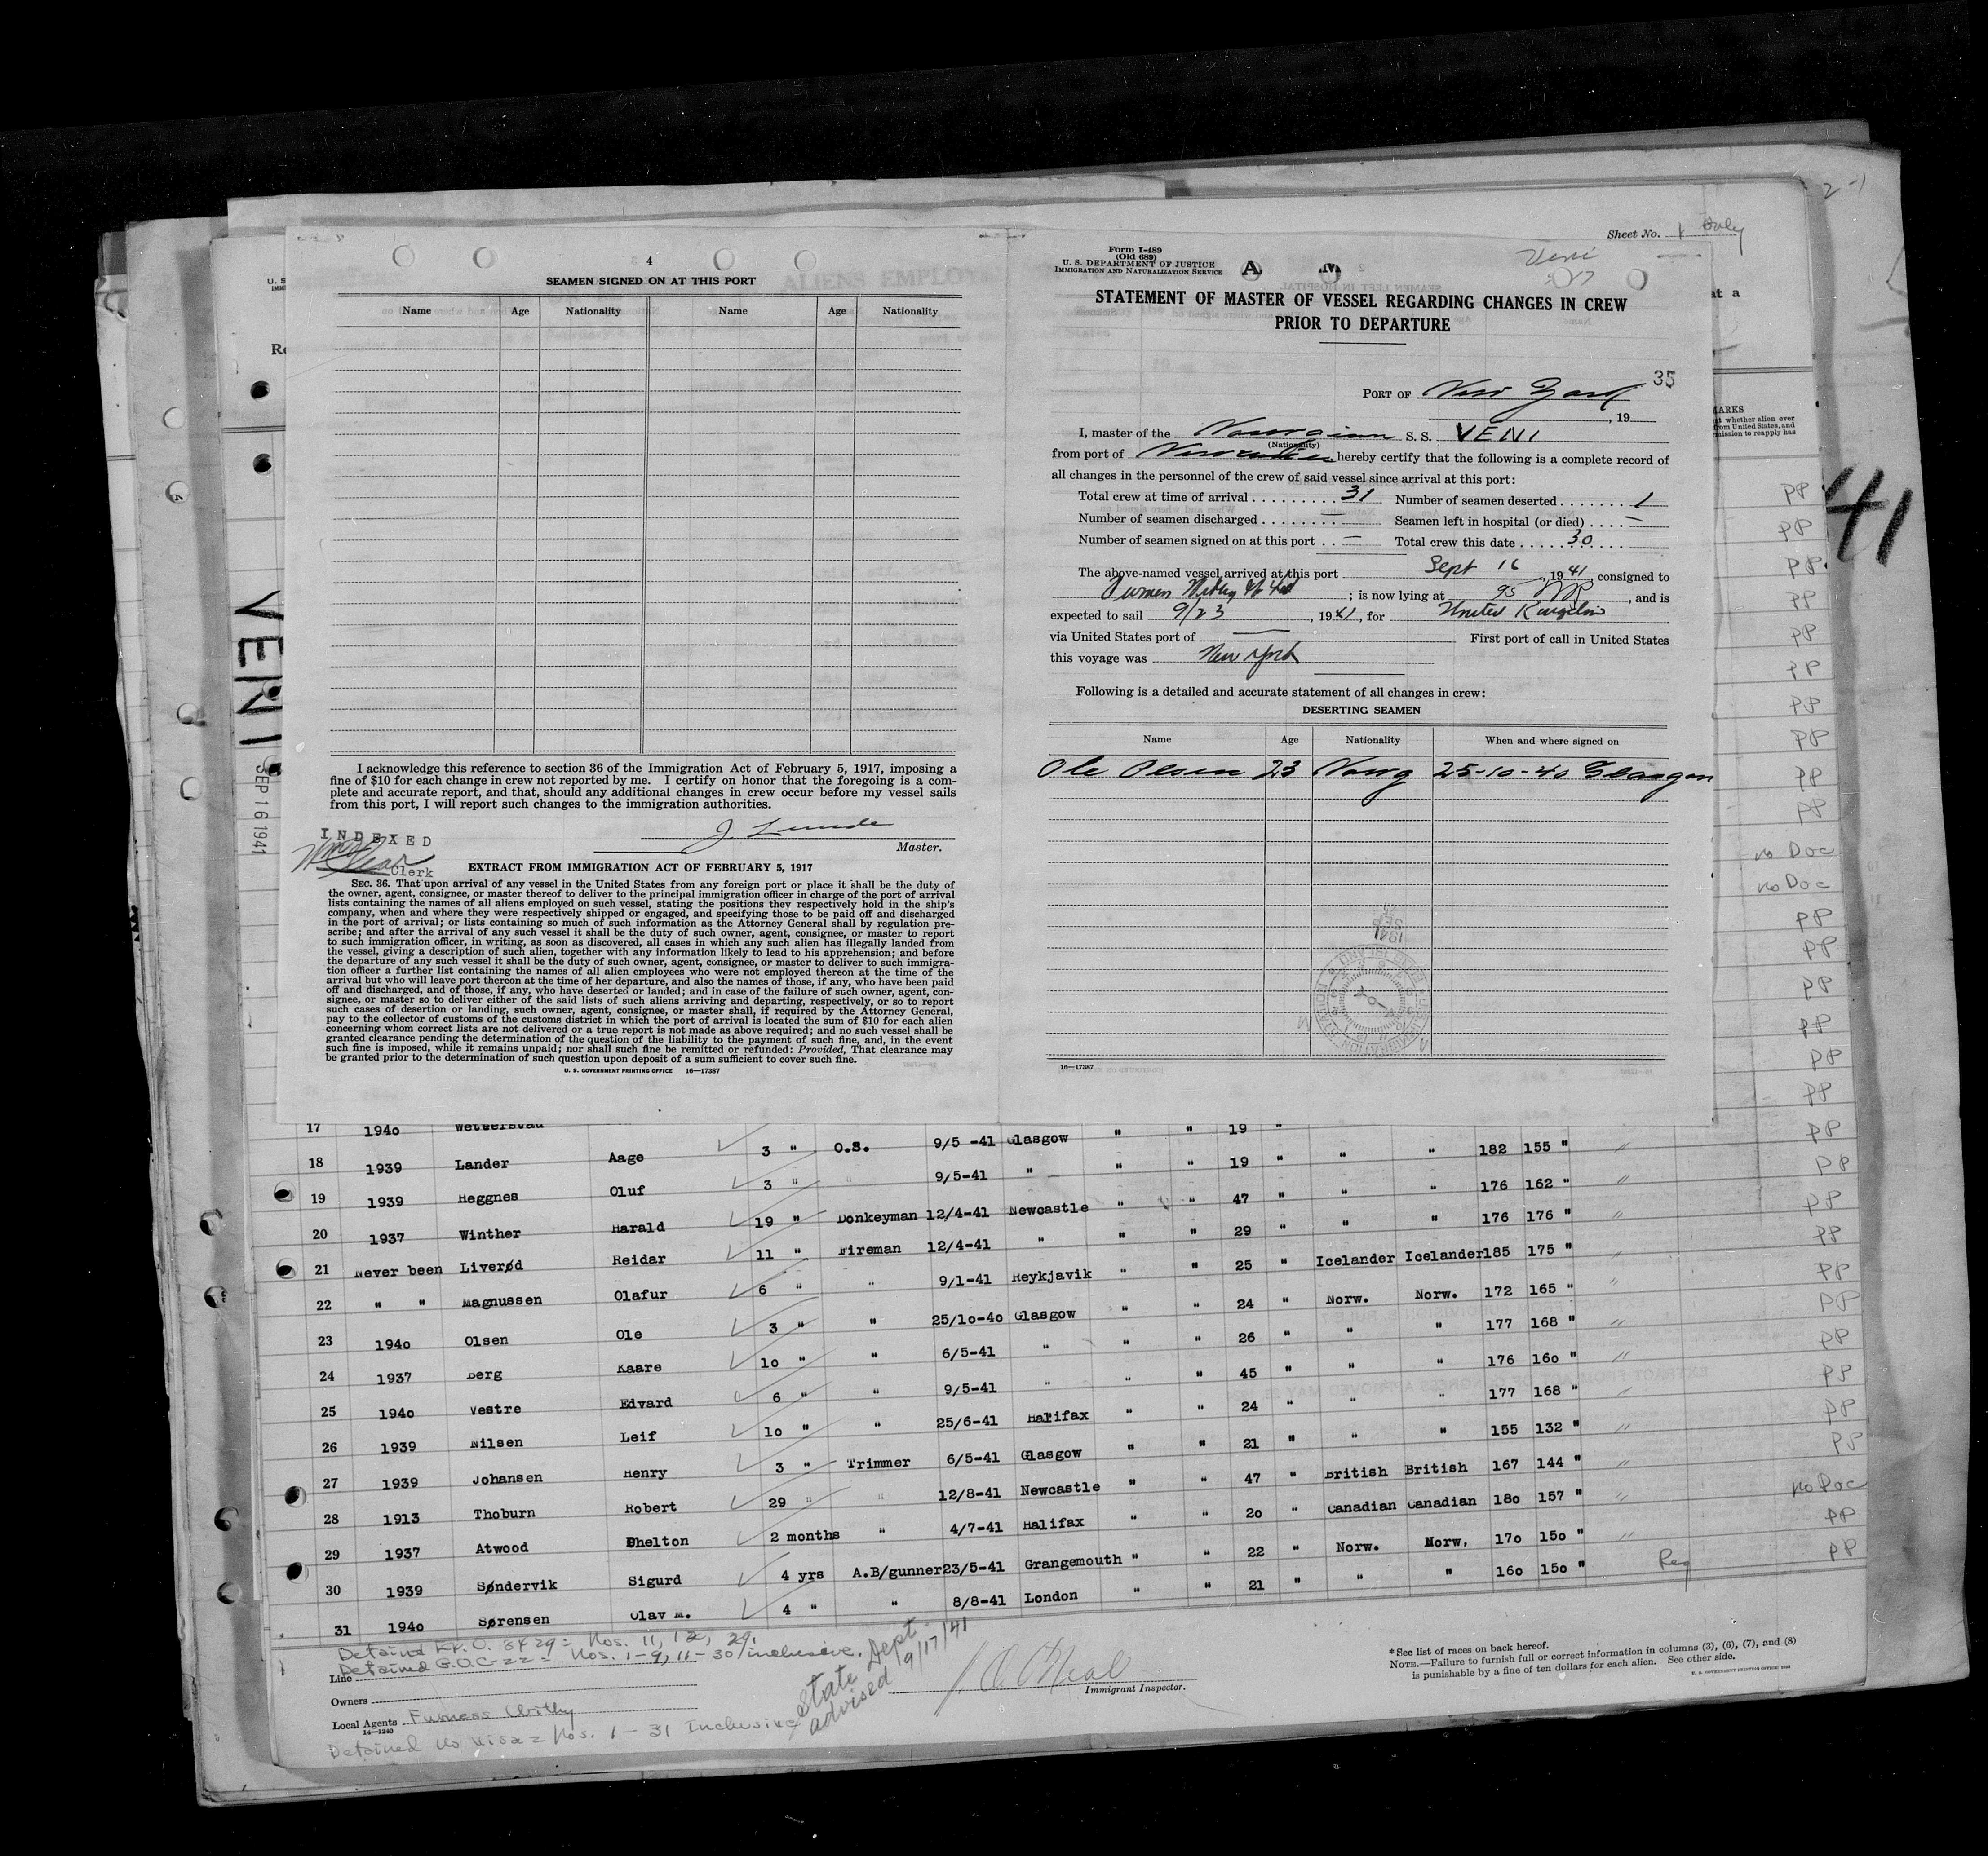 2-1
Sheet No. 1 Only
4
SEAMEN SIGNED ON AT THIS PORT
Name Age Nationality Name Age Nationality
I acknowledge this reference to section 36 of the Immigration Act of February 5, 1917, imposing a
fine of $10 for each change in crew not reported by me. I certify on honor that the foregoing is a com-
plete and accurate report, and that, should any additional changes in crew occur before my vessel sails
from this port, I will report such changes to the immigration authorities.
J. Lunde
Master.
INDEXED
Clerk
EXTRACT FROM IMMIGRATION ACT OF FEBRUARY 5, 1917
SEC. 36. That upon arrival of any vessel in the United States from any foreign port or place it shall be the duty of
the owner, agent, consignee, or master thereof to deliver to the principal immigration officer in charge of the port of arrival
lists containing the names of all aliens employed on such vessel, stating the positions they respectively hold in the ship's
company, when and where they were respectively shipped or engaged, and specifying those to be paid off and discharged
in the port of arrival; or lists containing so much of such information as the Attorney General shall by regulation pre-
scribe; and after the arrival of any such vessel it shall be the duty of such owner, agent, consignee, or master to report
to such immigration officer, in writing, as soon as discovered, all cases in which any such alien has illegally landed from
the vessel, giving a description of such alien, together with any information likely to lead to his apprehension; and before
the departure of any such vessel it shall be the duty of such owner, agent, consignee, or master to deliver to such immigra-
tion officer a further list containing the names of all alien employees who were not employed thereon at the time of the
arrival but who will leave port thereon at the time of her departure, and also the names of those, if any, who have been paid
off and discharged, and of those, if any, who have deserted or landed; and in case of the failure of such owner, agent, con-
signee, or master so to deliver either of the said lists of such aliens arriving and departing, respectively, or so to report
such cases of desertion or landing, such owner, agent, consignee, or master shall, if required by the Attorney General,
pay to the collector of customs of the customs district in which the port of arrival is located the sum of $10 for each alien
concerning whom correct lists are not delivered or a true report is not made as above required; and no such vessel shall be
granted clearance pending the determination of the question of the liability to the payment of such fine, and, in the event
such fine is imposed, while it remains unpaid; nor shall such fine be remitted or refunded: Provided, That clearance may
be granted prior to the determination of such question upon deposit of a sum sufficient to cover such fine.
U. S. GOVERNMENT PRINTING OFFICE 16—17387
Form I-489
(Old 689)
U. S. DEPARTMENT OF JUSTICE
IMMIGRATION AND NATURALIZATION SERVICE
A
Veni
STATEMENT OF MASTER OF VESSEL REGARDING CHANGES IN CREW
PRIOR TO DEPARTURE
35
PORT OF New York
, 19
I, master of the Norwegian S. S. VENI
(Nationality)
from port of Newcastle hereby certify that the following is a complete record of
all changes in the personnel of the crew of said vessel since arrival at this port:
Total crew at time of arrival 31 Number of seamen deserted 1
Number of seamen discharged — Seamen left in hospital (or died) —
Number of seamen signed on at this port — Total crew this date 30
The above-named vessel arrived at this port Sept 16, 1941, consigned to
Furness Withy & Co Ltd; is now lying at 95 NR, and is
expected to sail 9/23, 1941, for United Kingdom
via United States port of — First port of call in United States
this voyage was New York
Following is a detailed and accurate statement of all changes in crew:
DESERTING SEAMEN
Name Age Nationality When and where signed on
Ole Olsen 23 Norg 25-10-40 Glasgow
16—17387
VENI
SEP 16 1941
41
17 1940
18 1939 Lander Aage 3 " O.S. 9/5-41 Glasgow " " 19 " " " 182 155 "
19 1939 Heggnes Oluf 3 " " 9/5-41 " " " 19 " " " 176 162 "
20 1937 Winther Harald 19 " Donkeyman 12/4-41 Newcastle " " 47 " " " 176 176 "
21 Never been Liverød Reidar 11 " Fireman 12/4-41 " " " 29 " Icelander Icelander 185 175 "
22 " " Magnussen Olafur 6 " " 9/1-41 Reykjavik " " 25 " Norw. Norw. 172 165 "
23 1940 Olsen Ole 3 " " 25/10-40 Glasgow " " 24 " " " 177 168 "
24 1937 Berg Kaare 10 " " 6/5-41 " " " 26 " " " 176 160 "
25 1940 Vestre Edvard 6 " " 9/5-41 " " " 45 " " " 177 168 "
26 1939 Nilsen Leif 10 " " 25/6-41 Halifax " " 24 " " " 155 132 "
27 1939 Johansen Henry 3 " Trimmer 6/5-41 Glasgow " " 21 " British British 167 144 "
28 1913 Thoburn Robert 29 " " 12/8-41 Newcastle " " 47 " Canadian Canadian 180 157 "
29 1937 Atwood Shelton 2 months " 4/7-41 Halifax " " 20 " Norw. Norw. 170 150 "
30 1939 Søndervik Sigurd 4 yrs A.B/gunner 23/5-41 Grangemouth " " 22 " " " 160 150 "
31 1940 Sørensen Olav M. 4 " " 8/8-41 London " " 21 "
Detained No. 11, 12, 29.
Detained G.O.C-22 = Nos. 1-9, 11-30 inclusive.
Line
Owners
Local Agents Furness Withy
14—1240
Detained no visa = Nos. 1-31 Inclusive
State Dept. advised 9/17/41
Immigrant Inspector.
* See list of races on back hereof.
NOTE.—Failure to furnish full or correct information in columns (3), (6), (7), and (8)
is punishable by a fine of ten dollars for each alien. See other side.